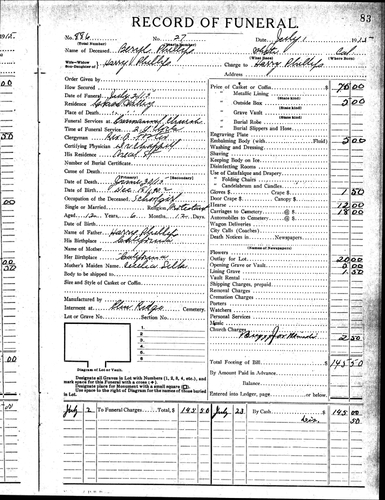 83
RECORD OF FUNERAL.
No. 886 No. 27 Date July 1 1915
(Total Number) (Yearly Number)
Name of Deceased Beryl Phillips White Cal
(What Race) (Where Born)
Wife—Widow
Son-Daughter of Harry Phillips Charge to Harry Phillips
Address
Order Given by
How Secured
Date of Funeral July 2/15
Residence
Place of Death
Funeral Services at Church
Time of Funeral Service 2 O'Clock
Clergyman Rev.
Certifying Physician Dr
His Residence
Number of Burial Certificate
Cause of Death
Date of Death June 30/15
Date of Birth Dec. 18, 1902
Occupation of the Deceased School girl
Single or Married Religion
Aged 12 Years 6 Months 12 Days
Name of Father Harry Phillips
His Birthplace California
Name of Mother
Her Birthplace California
Mother's Maiden Name
Body to be shipped to
Size and Style of Casket or Coffin
Manufactured by
Interment at Glen Ridge Cemetery.
Lot or Grave No. Section No.
1.
2.
3.
4.
5.
6.
Diagram of Lot or Vault.
Designate all Graves in Lot with Numbers (1, 2, 3, 4, etc.), and mark space for this Funeral with a cross (+).
Designate place for Monument with a small square (□).
Use space to the right of Diagram for the names of those buried in Lot.
Price of Casket or Coffin $ 75 00
" Metallic Lining
(State kind)
" Outside Box 5 00
(State kind)
" Grave Vault
(State kind)
" Burial Robe
(State kind)
" Burial Slippers and Hose
Engraving Plate
Embalming Body (with Fluid) 5 00
Washing and Dressing
Shaving
Keeping Body on Ice
Disinfecting Rooms
Use of Catafalque and Drapery
" Folding Chairs
" Candelabrum and Candles
Gloves $ Crape $ 1 50
Door Crape Canopy $
Hearse 12 00
Carriages to Cemetery @ $ 18 00
Automobiles to Cemetery @ $
Wagon Deliveries
City Calls (Coaches)
Death Notices in Newspapers
(Names of Newspapers)
Flowers
Outlay for Lot 20 00
Opening Grave or Vault 5 00
Lining Grave 1 50
Vault Rental
Shipping Charges, prepaid
Removal Charges
Cremation Charges
Porters
Watchers
Personal Services
Music
Church Charges
2 50
Total Footing of Bill $ 145 50
By Amount Paid in Advance
Balance
Entered into Ledger, page or below.
July 2 To Funeral Charges Total, $ 145 50 July 23 By Cash 145 00
Dis. 50